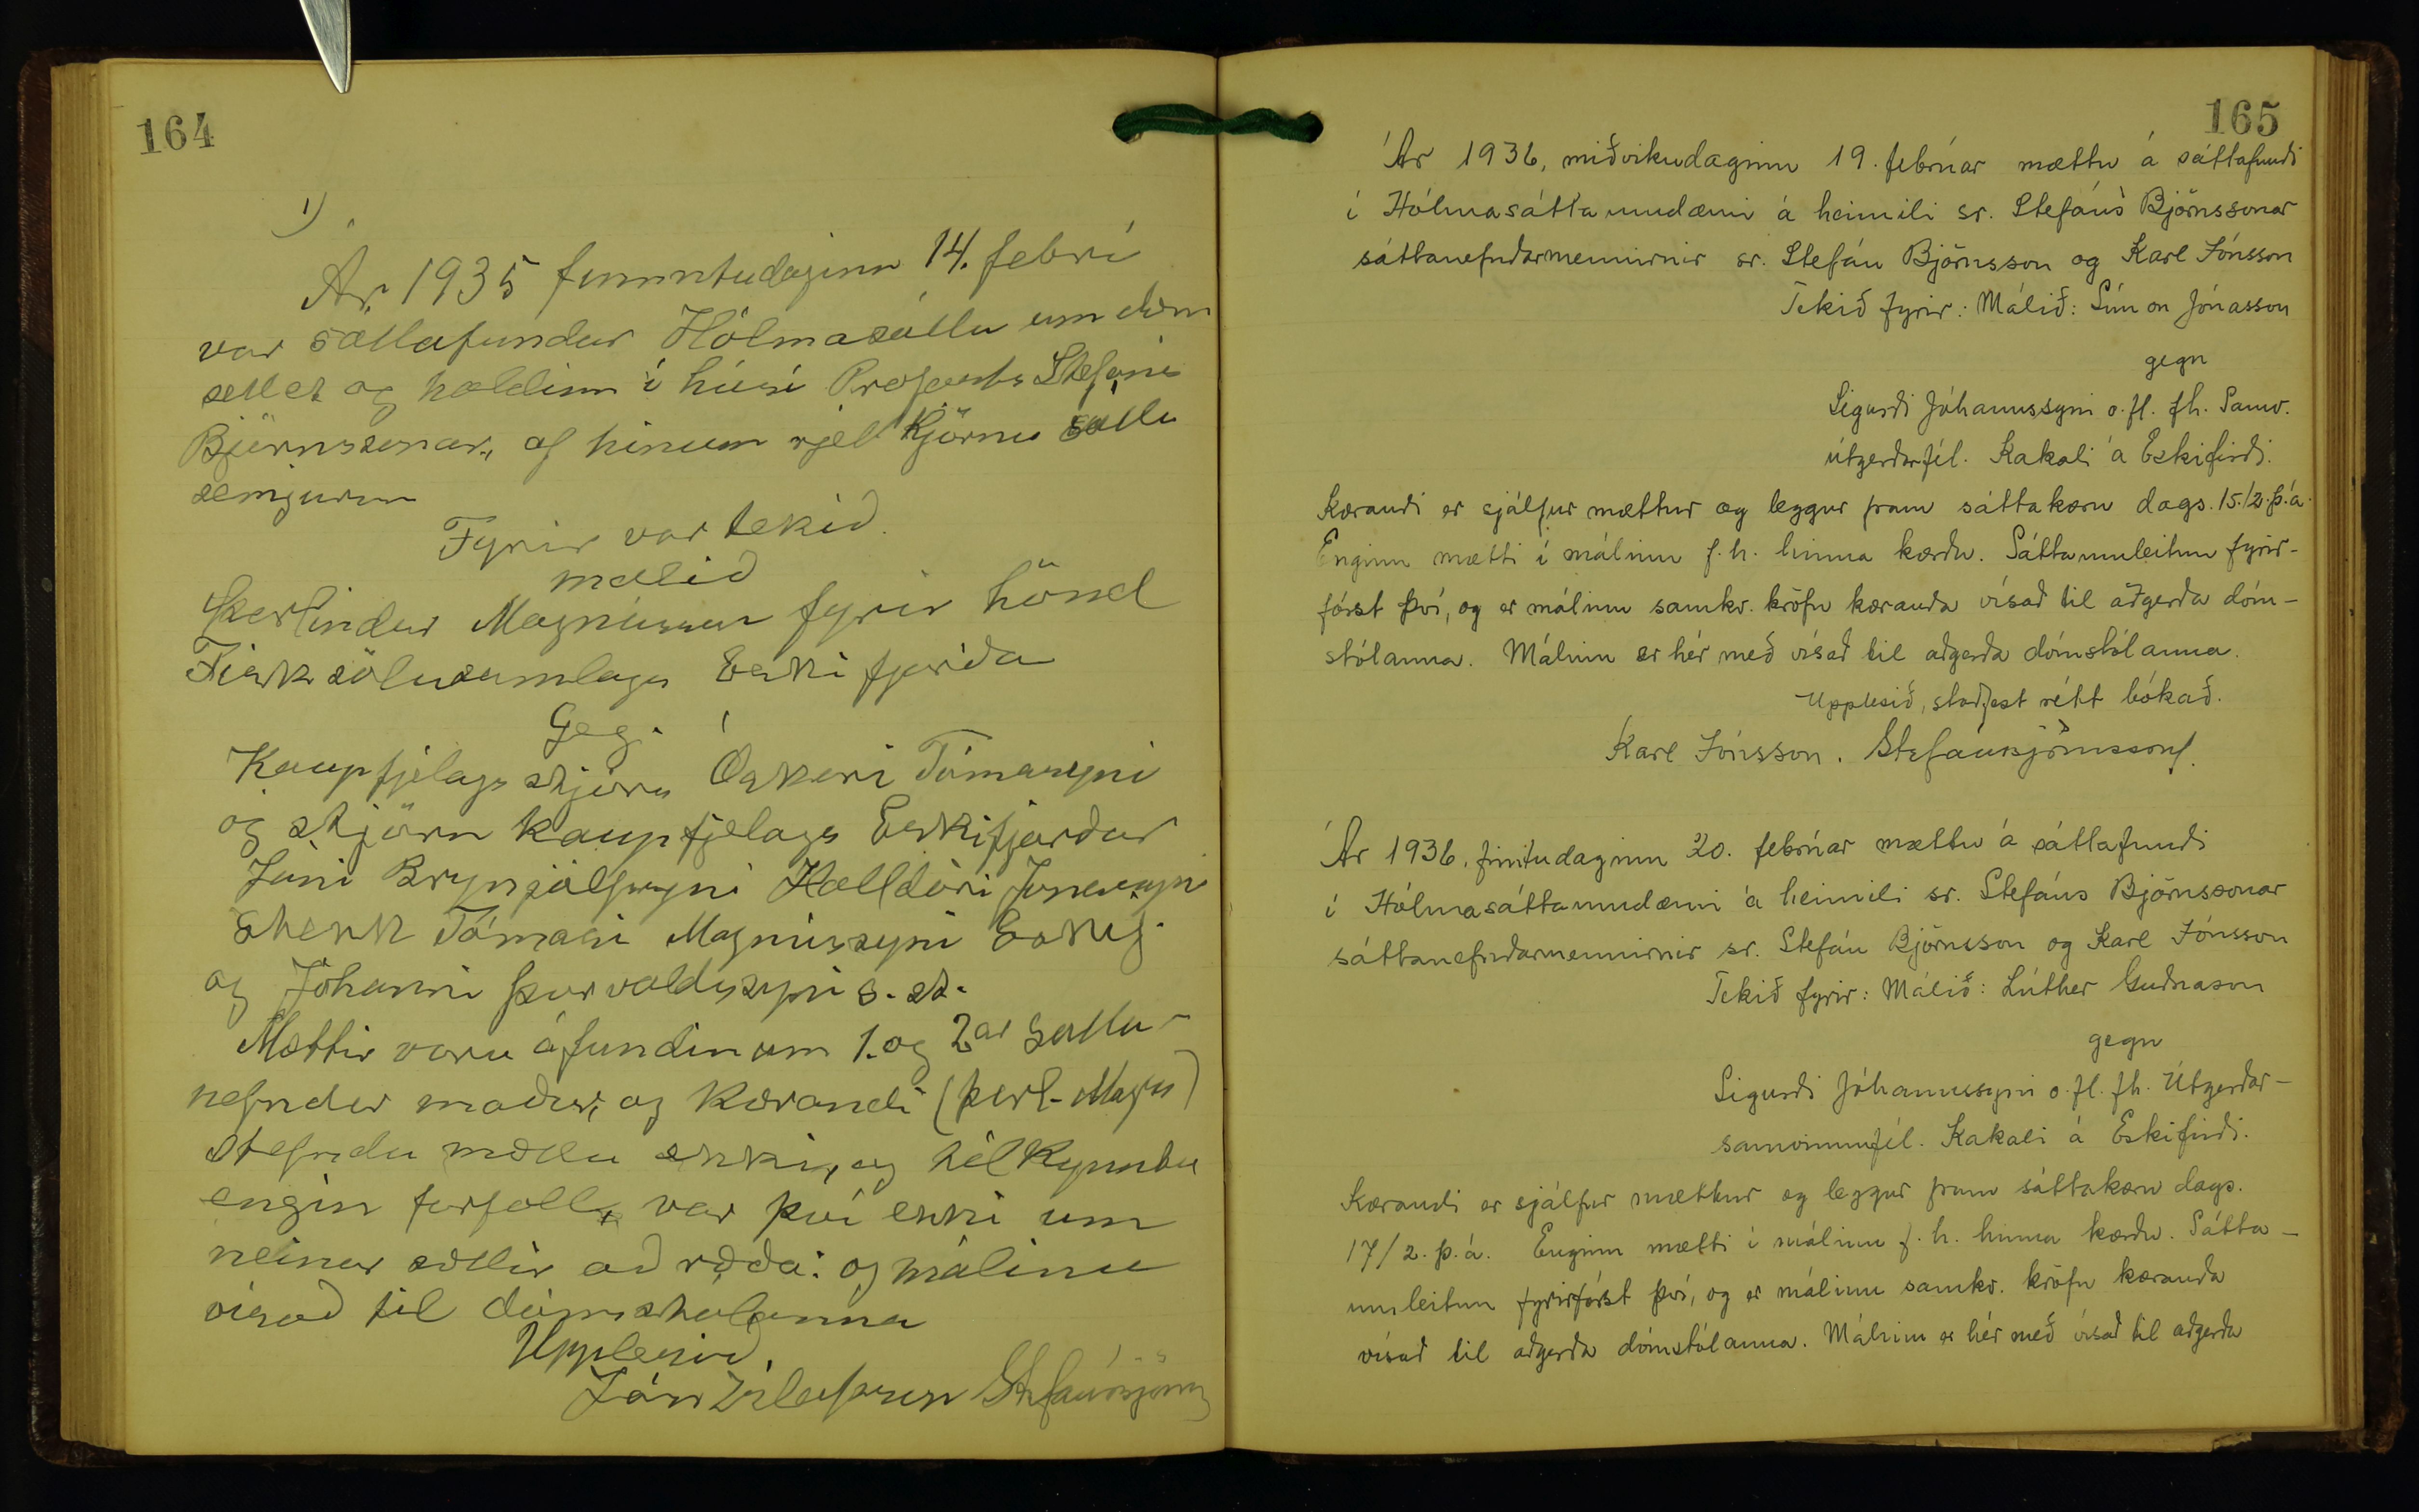 164
1)
Ár 1935 fimmtudaginn 14. febrí
var sáttafundur Hólmasátta umdæm
settur og haldinn í húsi Prófasts Stefáns
Björnssonar, af hinum rjett kjörnu sátta
semjurum
Fyrir var tekið.
málið
Þerlindur Magnússon fyrir hönd
Fisksölusamlags Eskifjarða
Geg.
Kaupfjelagsstjóra Óskari Tómassyni
og stjórn kaupfjelags Eskifjarðar
Jóni Brynjólfssyni Halldóri Jónssyni
Tómasi Magnússyni Eskif.
og Jóhanni Þorvaldssyni s. st.
Mættir voru á fundinum 1. og 2ar sátta-
nefndar maður, og kærandi (Þerl. Magn)
Stefndu mættu ekki, og tilkynntu
engin forföll, var því ekki um
neinar sættir að ræða: og málinu
vísað til dómstolanna
Upplesið.
Stefán Björnss
165
Ár 1936, miðvikudaginn 19. febrúar mættu á sáttafundi
í Hólmasáttaumdæmi á heimili sr. Stefáns Björnssonar
sáttanefndarmennirnir sr. Stefán Björnsson og Karl Jónsson
Tekið fyrir: Málið: Símon Jónasson
gegn
Sigurði Jóhannssyni o.fl. fh. Samv.
útgerðarfél. Kakali á Eskifirði.
Kærandi er sjálfur mættur og leggur fram sáttakæru dags. 15./2. þ.á.
Enginn mætti í málinu f. h. hinna kærðu. Sáttaumleitun fyrir-
fórst því, og er málinu samkv. kröfu kæranda vísað til aðgerða dóm-
stólanna. Málinu er hér með vísað til aðgerða dómstólanna.
Upplesið, staðfest rétt bókað.
Karl Jónsson. Stefán Björnsson.
Ár 1936, fimtudaginn 20. febrúar mættu á sáttafundi
í Hólmasáttaumdæmi á heimili sr. Stefáns Björnssonar
sáttanefndarmennirnir sr. Stefán Björnsson og Karl Jónsson
Tekið fyrir: Málið: Lúther Guðnason
gegn
Sigurði Jóhannssyni o.fl. fh. Útgerðar-
samvinnufél. Kakali á Eskifirði.
Kærandi er sjálfur mættur og leggur fram sáttakæru dags.
17/2. þ.á. Enginn mætti í málinu f. h. hinna kærðu. Sátta-
umleitun fyrirfórst því, og er málinu samkv. kröfu kæranda
vísað til aðgerða dómstólanna. Málinu er hér með vísað til aðgerða